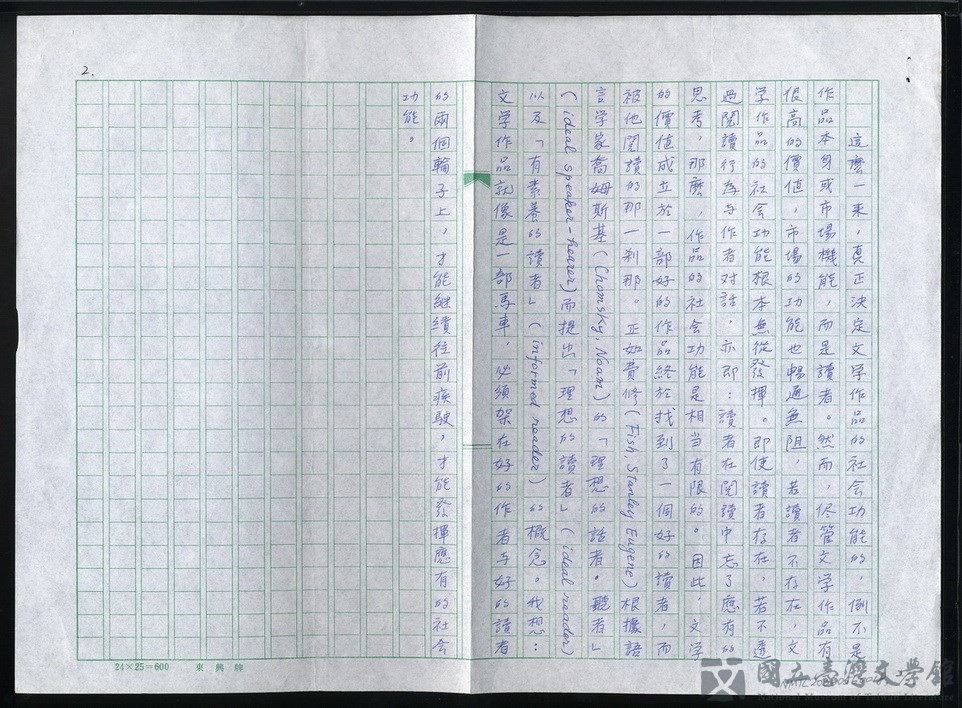 2.
這麼一來，真正決定文学作品的社会功能的，倒不是
作品本身或市場機能，而是讀者。然而，儘管文学作品有
很高的價值，市場的功能也暢通無阻，若讀者不存在，文
学作品的社会功能根本無從發揮。即使讀者存在，若不透
過閱讀行為与作者对話，亦即：讀者在閱讀中忘了應有的
思考，那麼，作品的社会功能是相当有限的。因此，文字
的價值成立於一部好的作品終於找到了一個好的讀者，而
被他閱讀的那一刹那。正如費修（Fish, Stanley Eugene）根據語
言学家喬姆斯基（Chomsky, Noam）的「理想的話者・聽者」
（ideal speaker-hearer）而提出「理想的讀者」（ideal reader）
以及「有素養的讀者」（informed reader）的概念。我想：
文学作品就像是一部馬車，必須架在好的作者与好的讀者
的兩個輪子上，才能継續往前疾駛，才能發揮應有的社会
功能。
24×25=600 東興牌
國立臺灣文學館
National Museum of Taiwan Literature